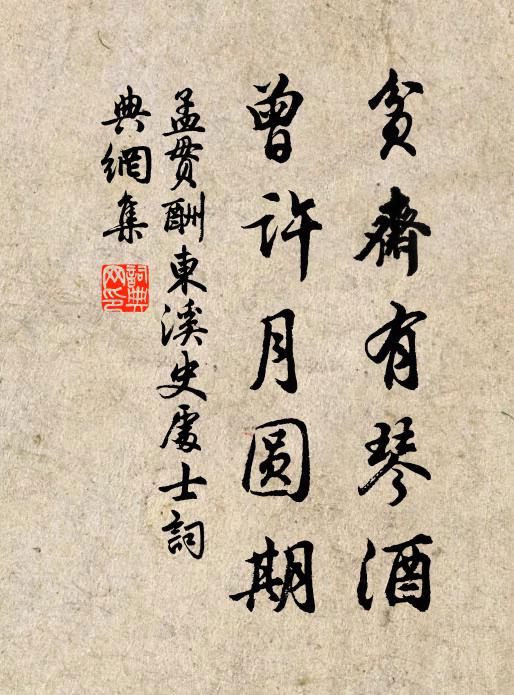 貧齋有琴酒
曾許月圆期
孟貫酬東溪史處士詞
典網集
詞典網印